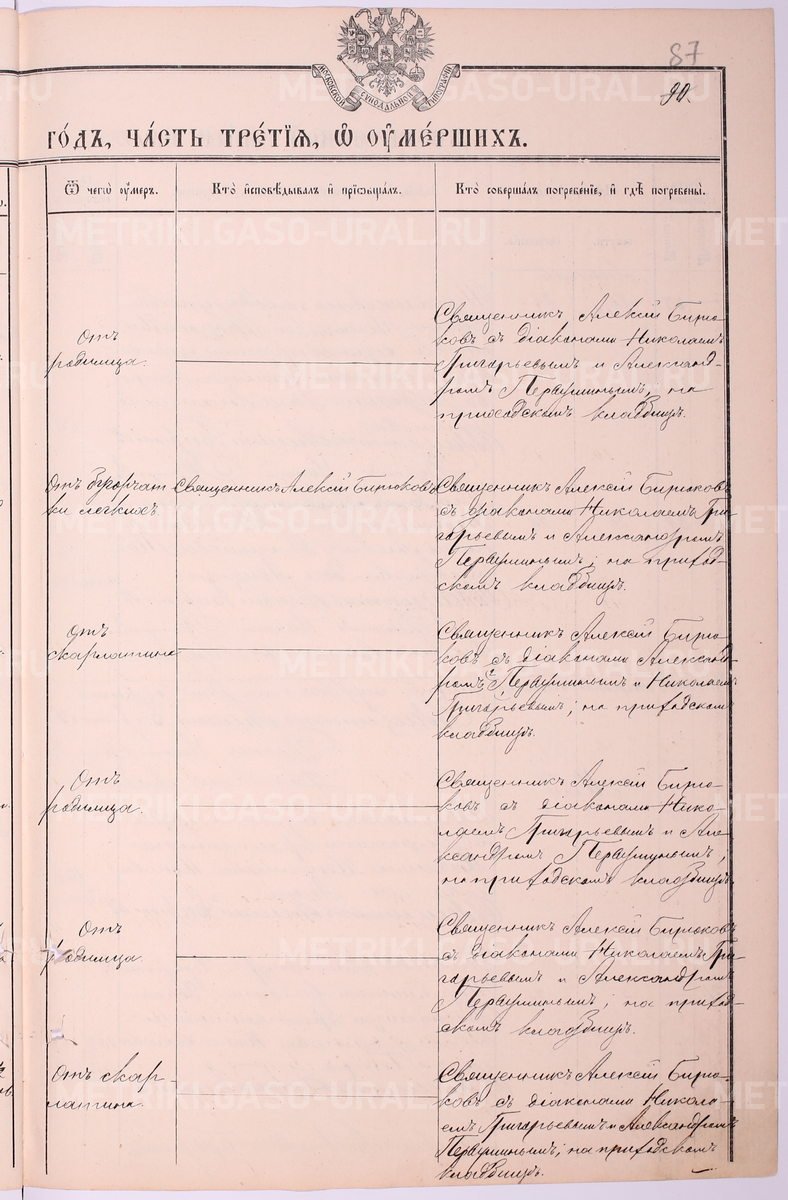 МОСКОВСКОЙ СѴНОДАЛЬНОЙ ТИПОГРАФІИ
87
90.
го́дъ, ча́сть тре́тїѧ, ѡ҆ ᲂу҆ме́ршихъ.
Ѿ чегѡ̀ ᲂу҆́меръ.
Кто̀ и҆сповѣ́дывалъ и҆ прїѡбща́лъ.
Кто̀ соверша́лъ погребе́нїе, и҆ гдѣ̀ погребены̀.
Отъ
родимца.
Священникъ Алексій Бирю-
ковъ съ діаконами Николаемъ
Григорьевымъ и Александ-
ромъ Первушинымъ, на
приходскомъ кладбищѣ.
Отъ бугорчат
ки легкихъ.
Священникъ Алексій Бирюковъ
Священникъ Алексій Бирюковъ
съ діаконами Николаемъ Гри-
горьевымъ и Александромъ
Первушинымъ; на приход-
скомъ кладбищѣ.
Отъ
скарлатины
Священникъ Алексій Бирю-
ковъ съ діаконами Александ-
ромъ Первушинымъ и Николаемъ
Григорьевымъ; на приходскомъ
кладбищѣ.
Отъ
родимца.
Священникъ Алексій Бирю-
ковъ съ діаконами Нико-
лаемъ Григорьевымъ и Але-
ксандромъ Первушинымъ;
на приходскомъ кладбищѣ.
Отъ
родимца.
Священникъ Алексій Бирюковъ
съ діаконами Николаемъ Гри-
горьевымъ и Александромъ
Первушинымъ; на приход-
скомъ кладбищѣ.
Отъ скар
латины.
Священникъ Алексій Бирю-
ковъ съ діаконами Никола-
емъ Григорьевымъ и Александромъ
Первушинымъ; на приходскомъ
кладбищѣ.
METRIKI.GASO-URAL.RU